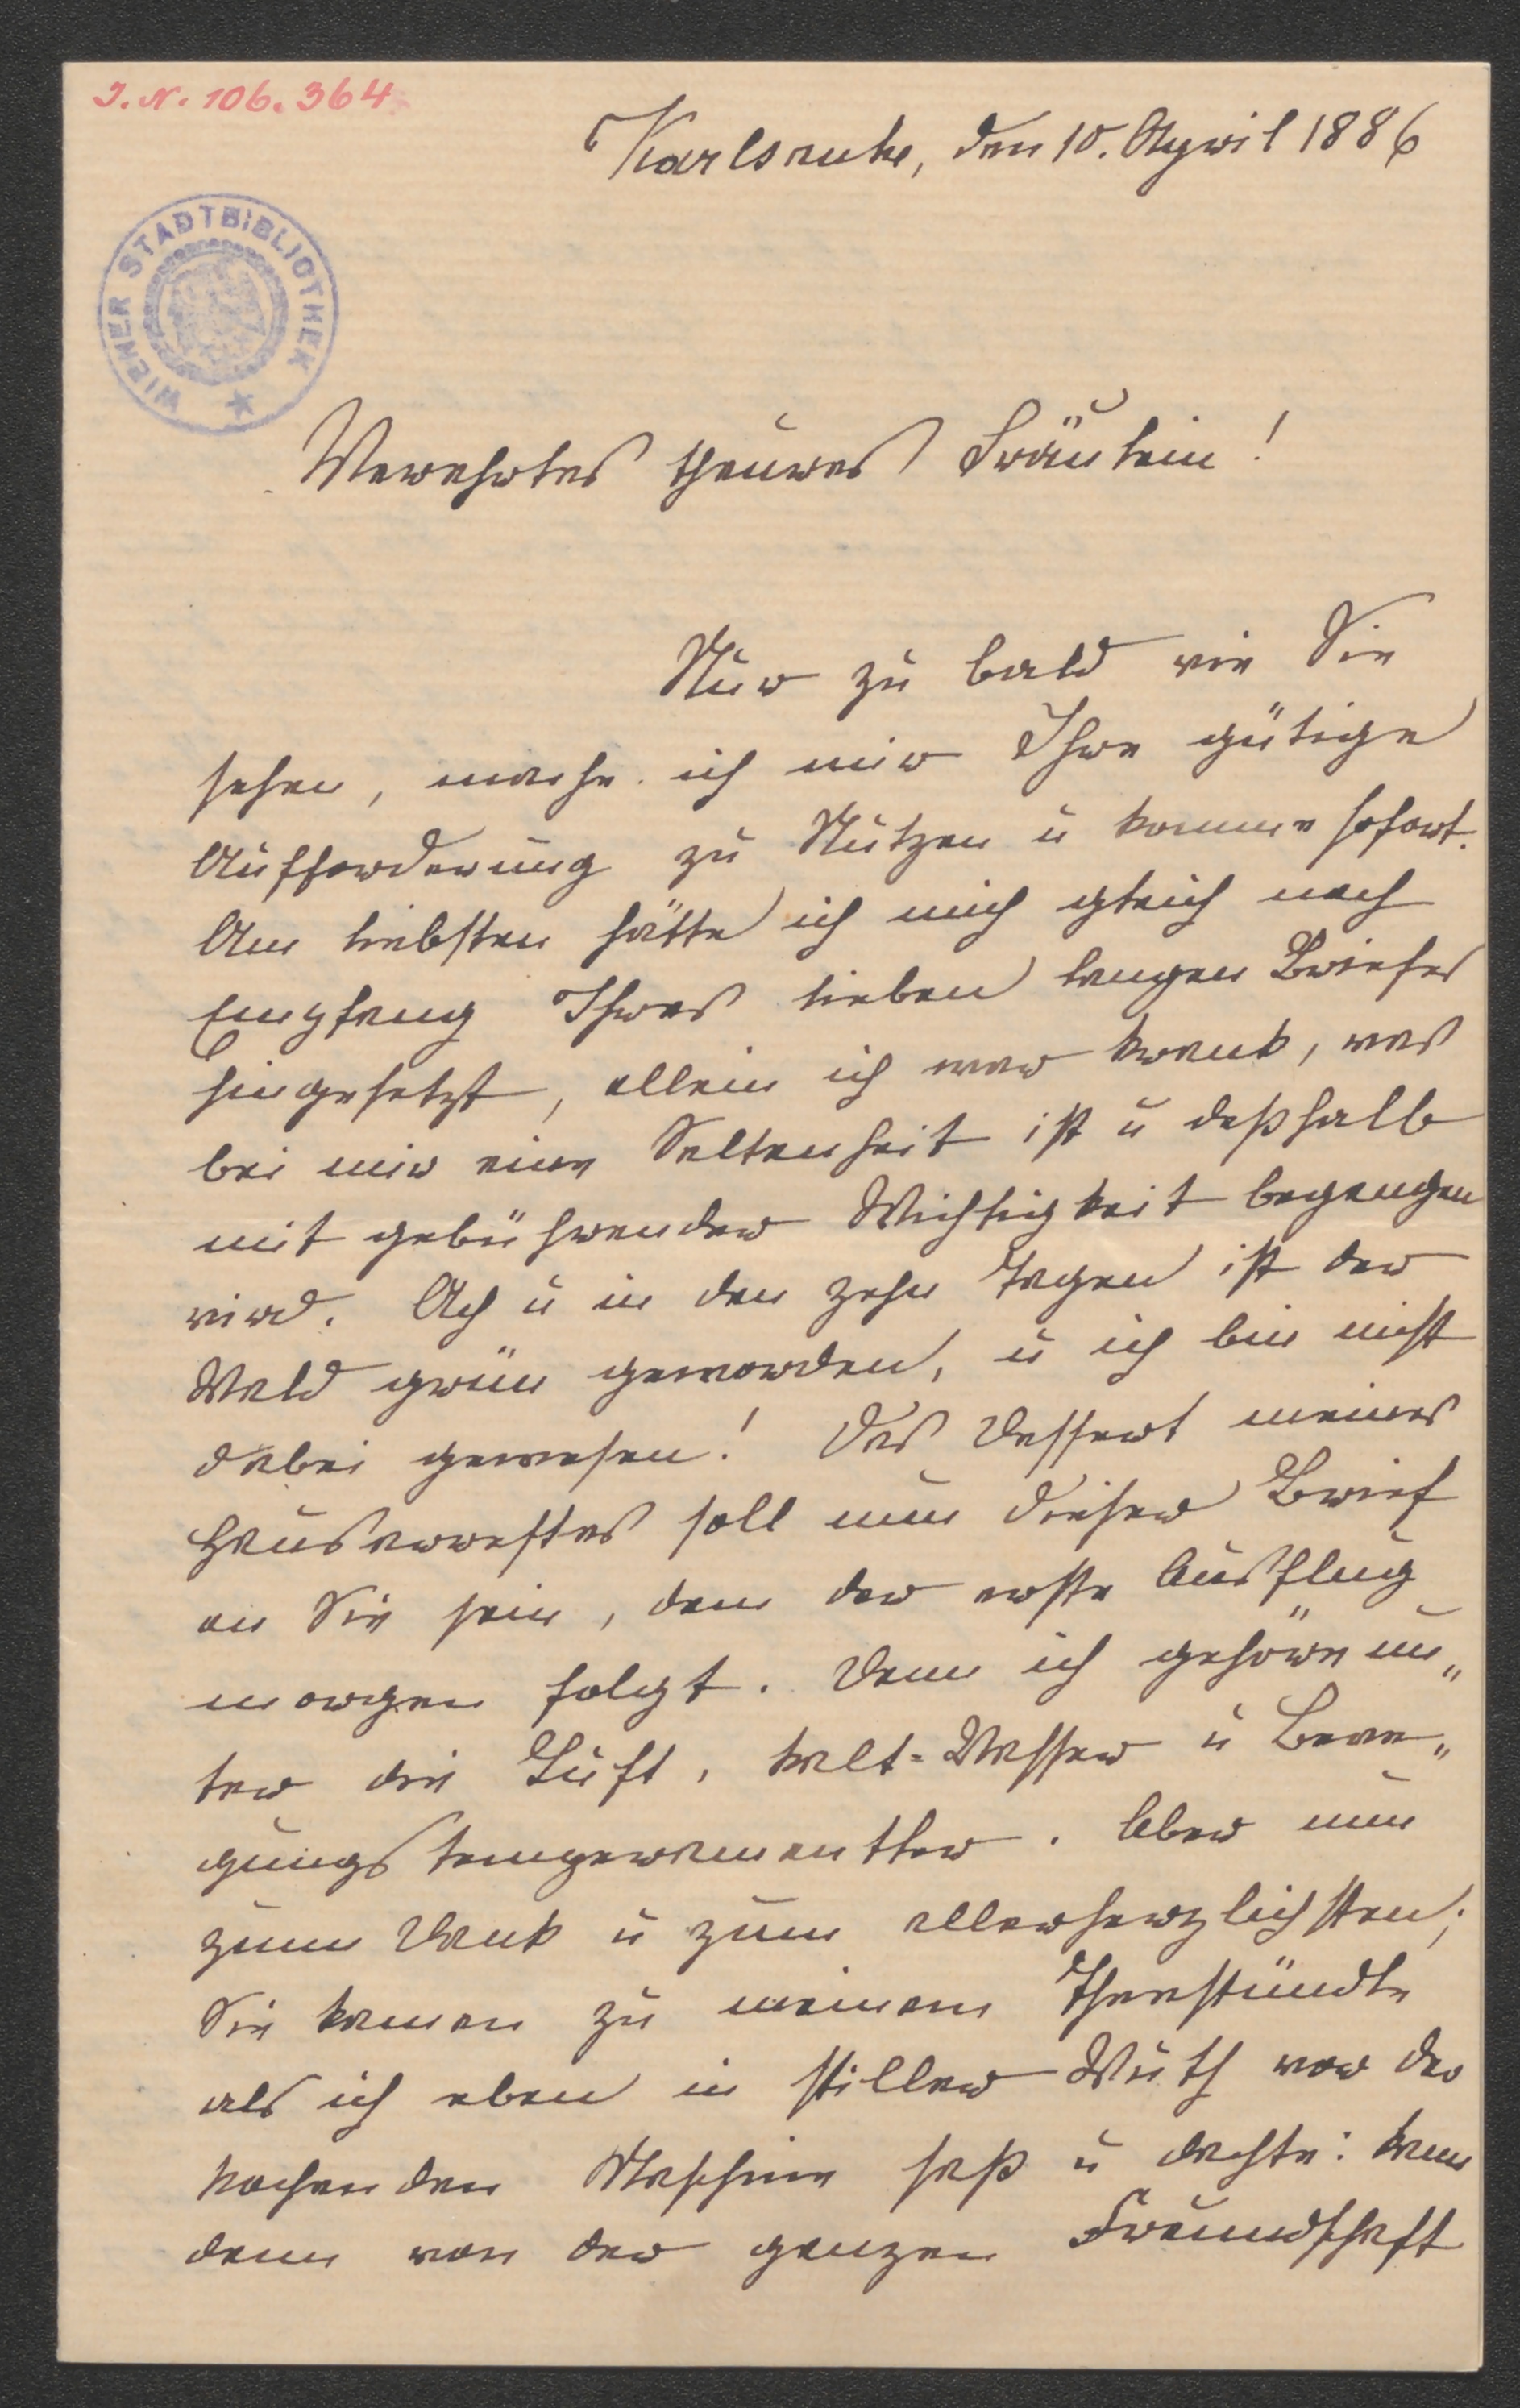 I. N. 106.364
Karlsruhe, den 10. April 1886
WIENER STADTBIBLIOTHEK
Verehrtes theures Fräulein!
Nur zu bald wie Sie
sehen, mache ich mir Ihre gütige
Aufforderung zu Nutzen u komme sofort.
Am liebsten hätte ich mich gleich nach
Empfang Ihres lieben langen Briefes
hingesetzt, allein ich war krank, was
bei mir eine Seltenheit ist u deßhalb
mit gebührender Wichtigkeit begangen
wird. Ach u in den zehn Tagen ist der
Wald grün geworden, u ich bin nicht
dabei gewesen! Das Dessert meines
Hausarrestes soll nun dieser Brief
an Sie sein, dem der erste Ausflug
morgen folgt. Denn ich gehöre un„
ter die Luft, Kalt-Wasser u Bewe„
gungstemperamentler. Aber nun
zum Dank u zum allerherzlichsten;
Sie kamen zu meinem Theestündle
als ich eben in stiller Wuth vor der
kochenden Maschine saß u dachte: kann
denn von der ganzen Freundschaft